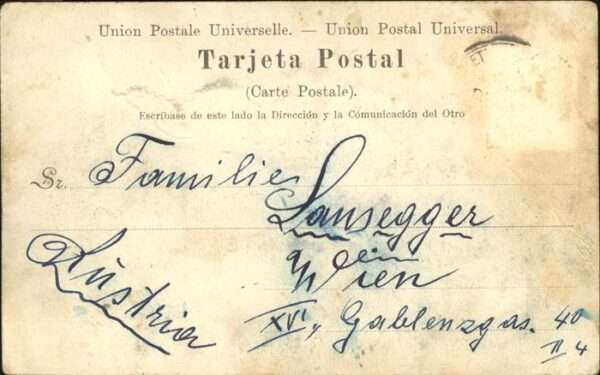 Union Postale Universelle. — Union Postal Universal.
Tarjeta Postal
(Carte Postale).
Escríbase de este lado la Dirección y la Comúnicación del Otro
Sr. Familie
Lansegger
Wien
Austria
XVI, Gablenzgas. 40
II 4